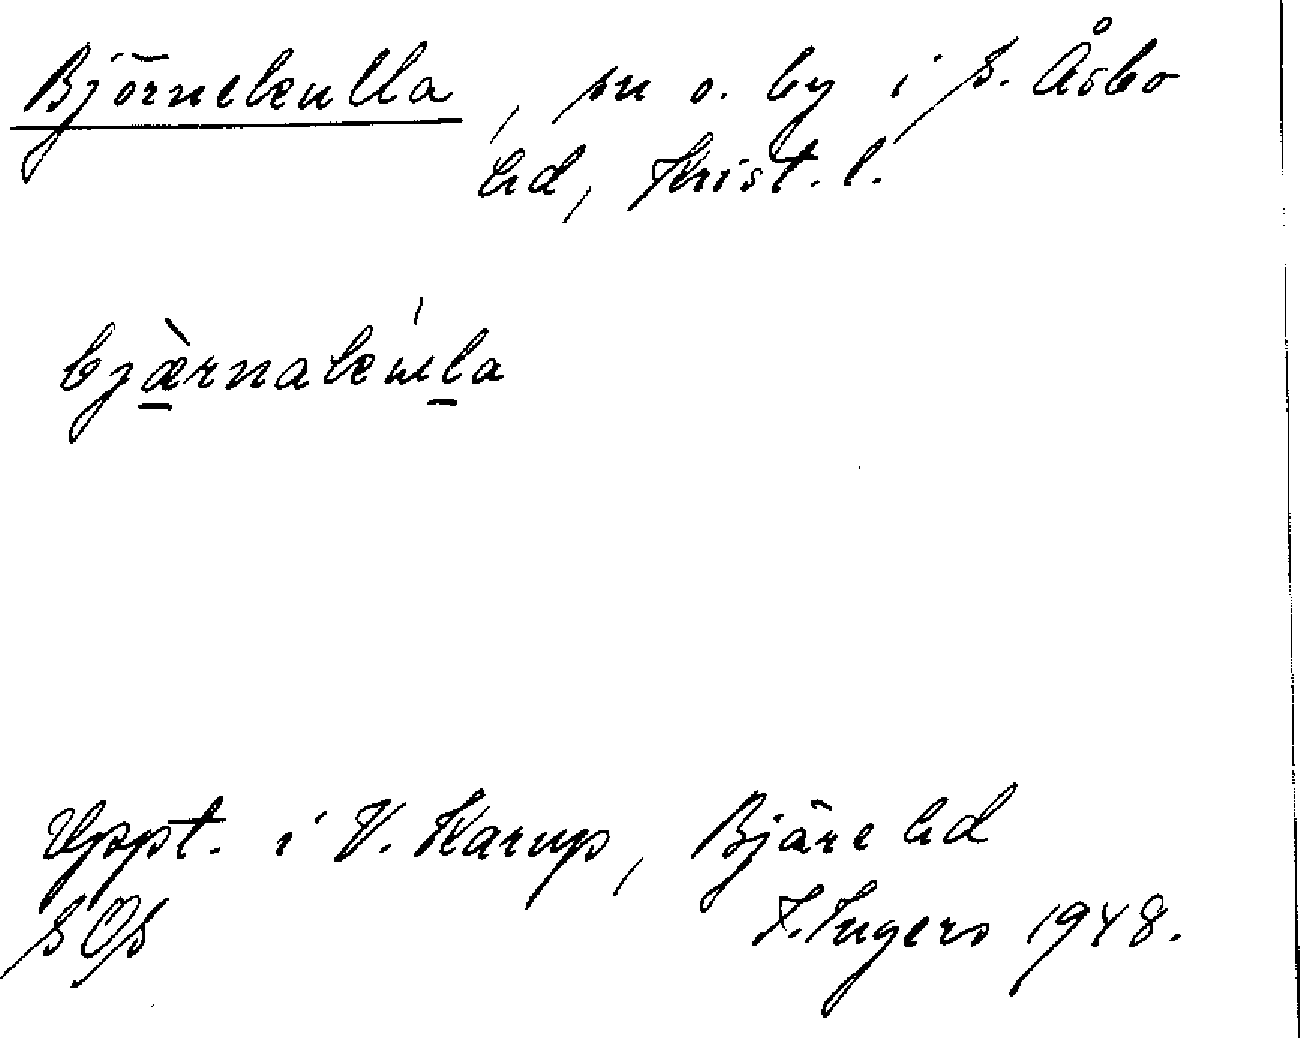 Björnekulla, sn o. by i S. Åsbo
hd, Krist. l.
bjæ̀rnakúla
Uppt. i V. Karup, Bjäre hd
SOS I. Ingers 1948.